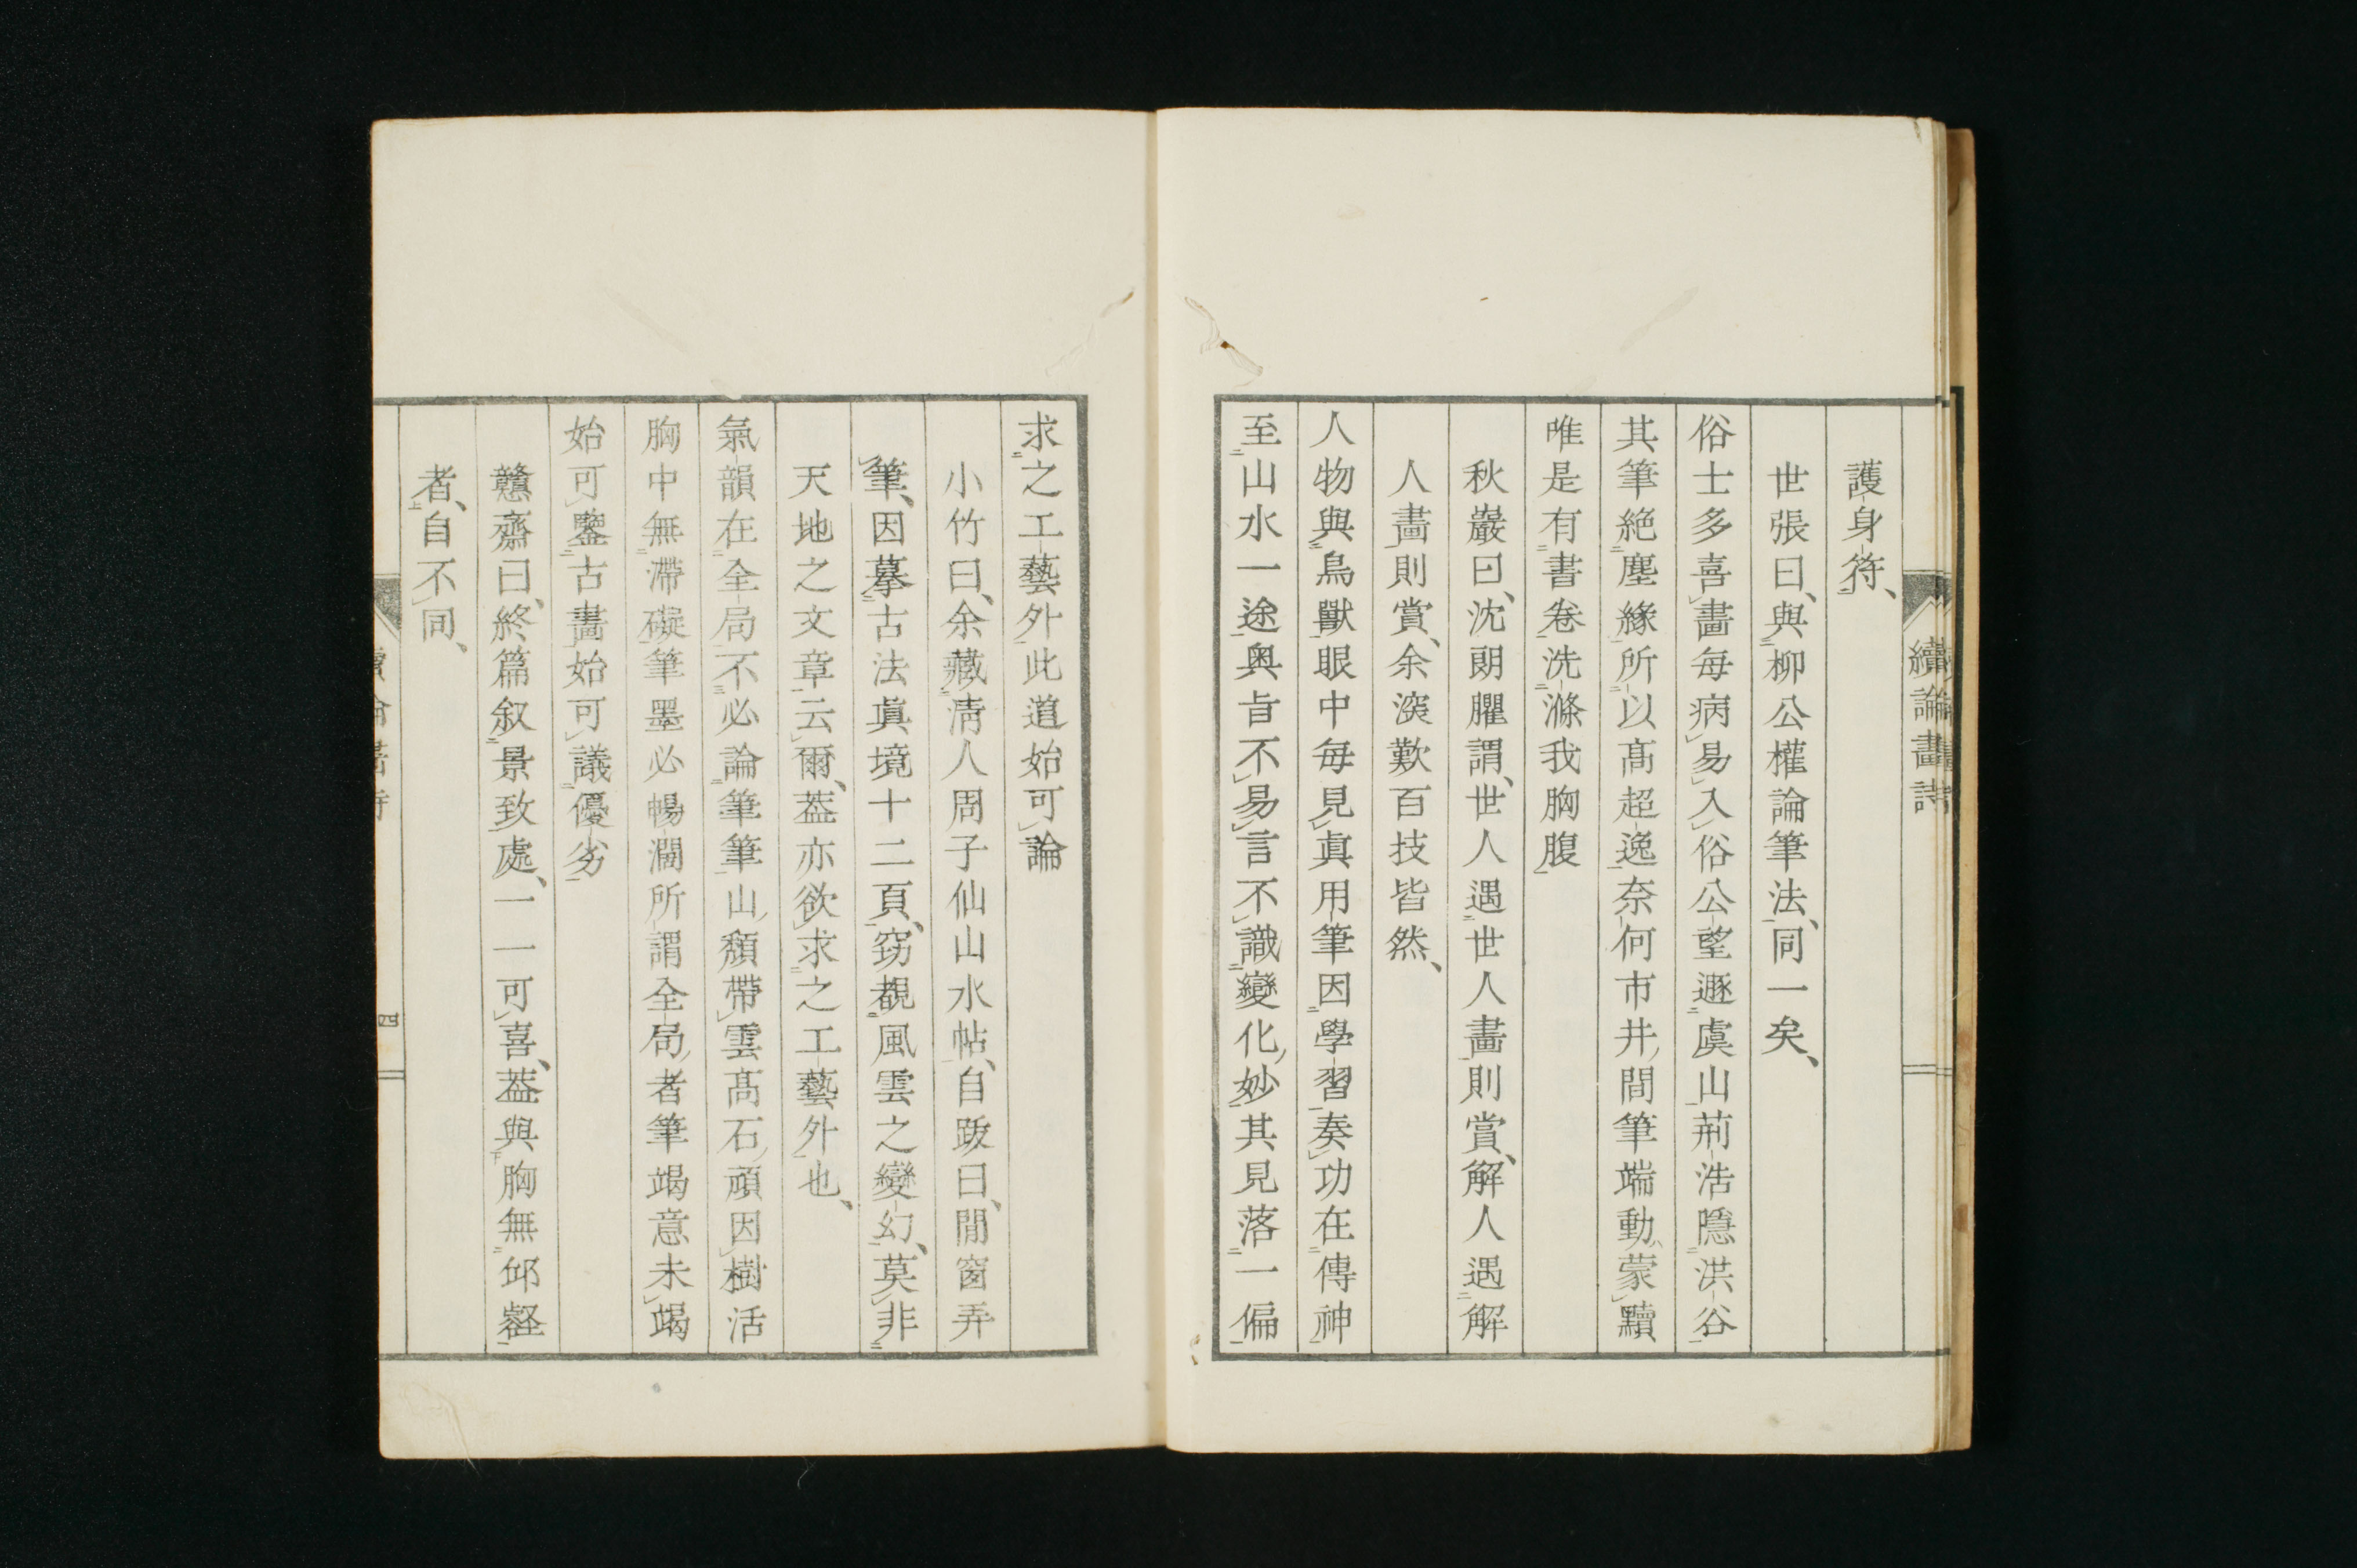 續論畫詩
護身符、
世張曰、與柳公權論筆法、同一矣、
俗士多喜畫每病易入俗公望遯虞山荊浩隱洪谷
其筆絶塵緣所以髙超逸奈何市井間筆端動蒙黷
唯是有書卷洗滌我胸腹
秋巖曰、沈朗臞謂、世人遇世人畫則賞、解人遇解
人畫則賞、余深歎百技皆然、
人物與鳥獸眼中每見眞用筆因學習奏功在傳神
至山水一途奧旨不易言不識變化妙其見落一偏
求之工藝外此道始可論
小竹曰、余藏淸人周子仙山水帖、自跋曰、閒窗弄
筆、因摹古法眞境十二頁、窃覩風雲之變幻、莫非
天地之文章云爾、葢亦欲求之工藝外也、
氣韻在全局不必論筆筆山頹帶雲髙石頑因樹活
胸中無滯礙筆墨必暢濶所謂全局者筆竭意未竭
始可鑒古畫始可議優劣
戇齋曰、終篇叙景致處、一一可喜、葢與胸無邱壑
者、自不同、
四